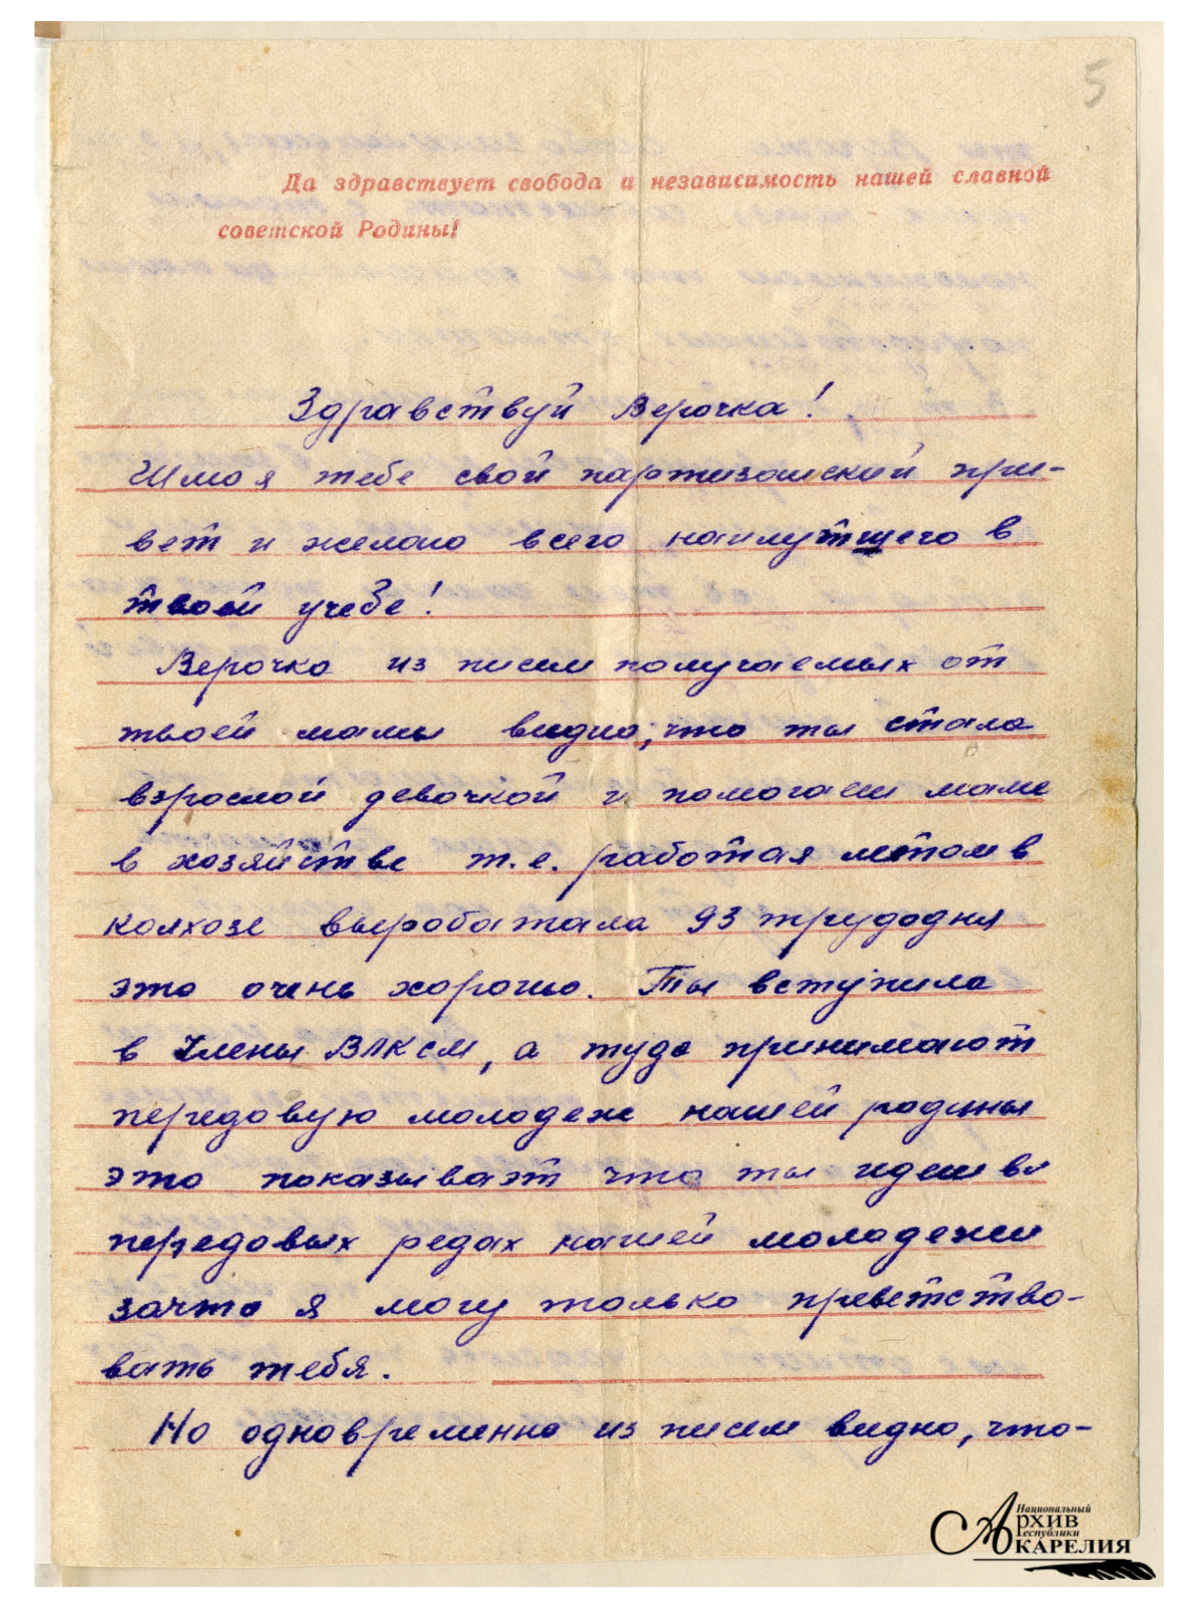 5
Да здравствует свобода и независимость нашей славной
советской Родины!
Здравствуй Верочка!
Шлю я тебе свой партизанский при-
вет и желаю всего наилутшего в
твоей учебе!
Верочка из писем получаемых от
твоей мамы видно, что ты стала
взрослой девочкой и помогаеш маме
в хозяйстве т.е. работая летом в
колхозе выработала 93 трудодня
это очень хорошо. Ты вступила
в члены ВЛКСМ, а туда принимают
передовую молодеж нашей родины
это показываэт что ты идеш в
передовых редах нашей молодежи
зачто я могу только приветство-
вать тебя.
Но одновременно из писем видно, что-
Национальный
Архив
Республики
Карелия